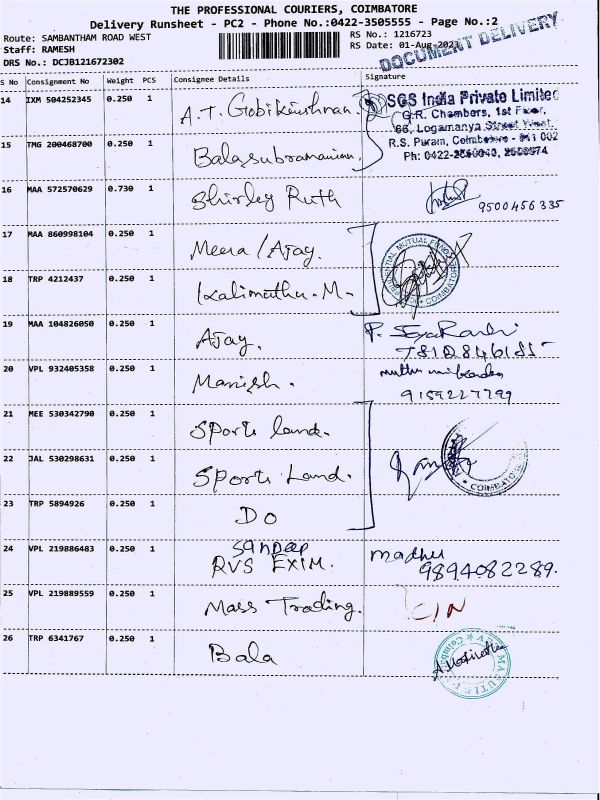 THE PROFESSIONAL COURIERS, COIMBATORE
Delivery Runsheet - PC2 - Phone No.:0422-3505555 - Page No.:2
Route: SAMBANTHAM ROAD WEST
Staff: RAMESH
DRS No.: DCJB121672302
RS No.: 1216723
RS Date: 01-Aug-2023
DOCUMENT DELIVERY
S No Consignment No Weight PCS Consignee Details Signature
14 IXM 504252345 0.250 1 A.T. Gobikrishnan.
SGS India Private Limited
G.R. Chambers, 1st Floor,
66, Logamanya Street West,
R.S. Puram, Coimbatore - 641 002
Ph: 0422-
15 TMG 200468700 0.250 1 Balasubramanian.
16 MAA 572570629 0.730 1 Shirley Ruth 9500456335
17 MAA 860998104 0.250 1 Meera / Ajay.
MUTUAL FUND
COIMBATORE
18 TRP 4212437 0.250 1 Kalimuthu. M-
19 MAA 104826050 0.250 1 Ajay.
20 VPL 932405358 0.250 1 Manish. 9159227799
21 MEE 530342790 0.250 1 Sports land.
22 JAL 530298631 0.250 1 Sports Land.
COIMBATORE
23 TRP 5894926 0.250 1 DO
24 VPL 219886483 0.250 1 Sandeep
RVS EXIM. madhu
9894082289.
25 VPL 219889559 0.250 1 Mass Trading. CIN
26 TRP 6341767 0.250 1 Bala
MARUTI